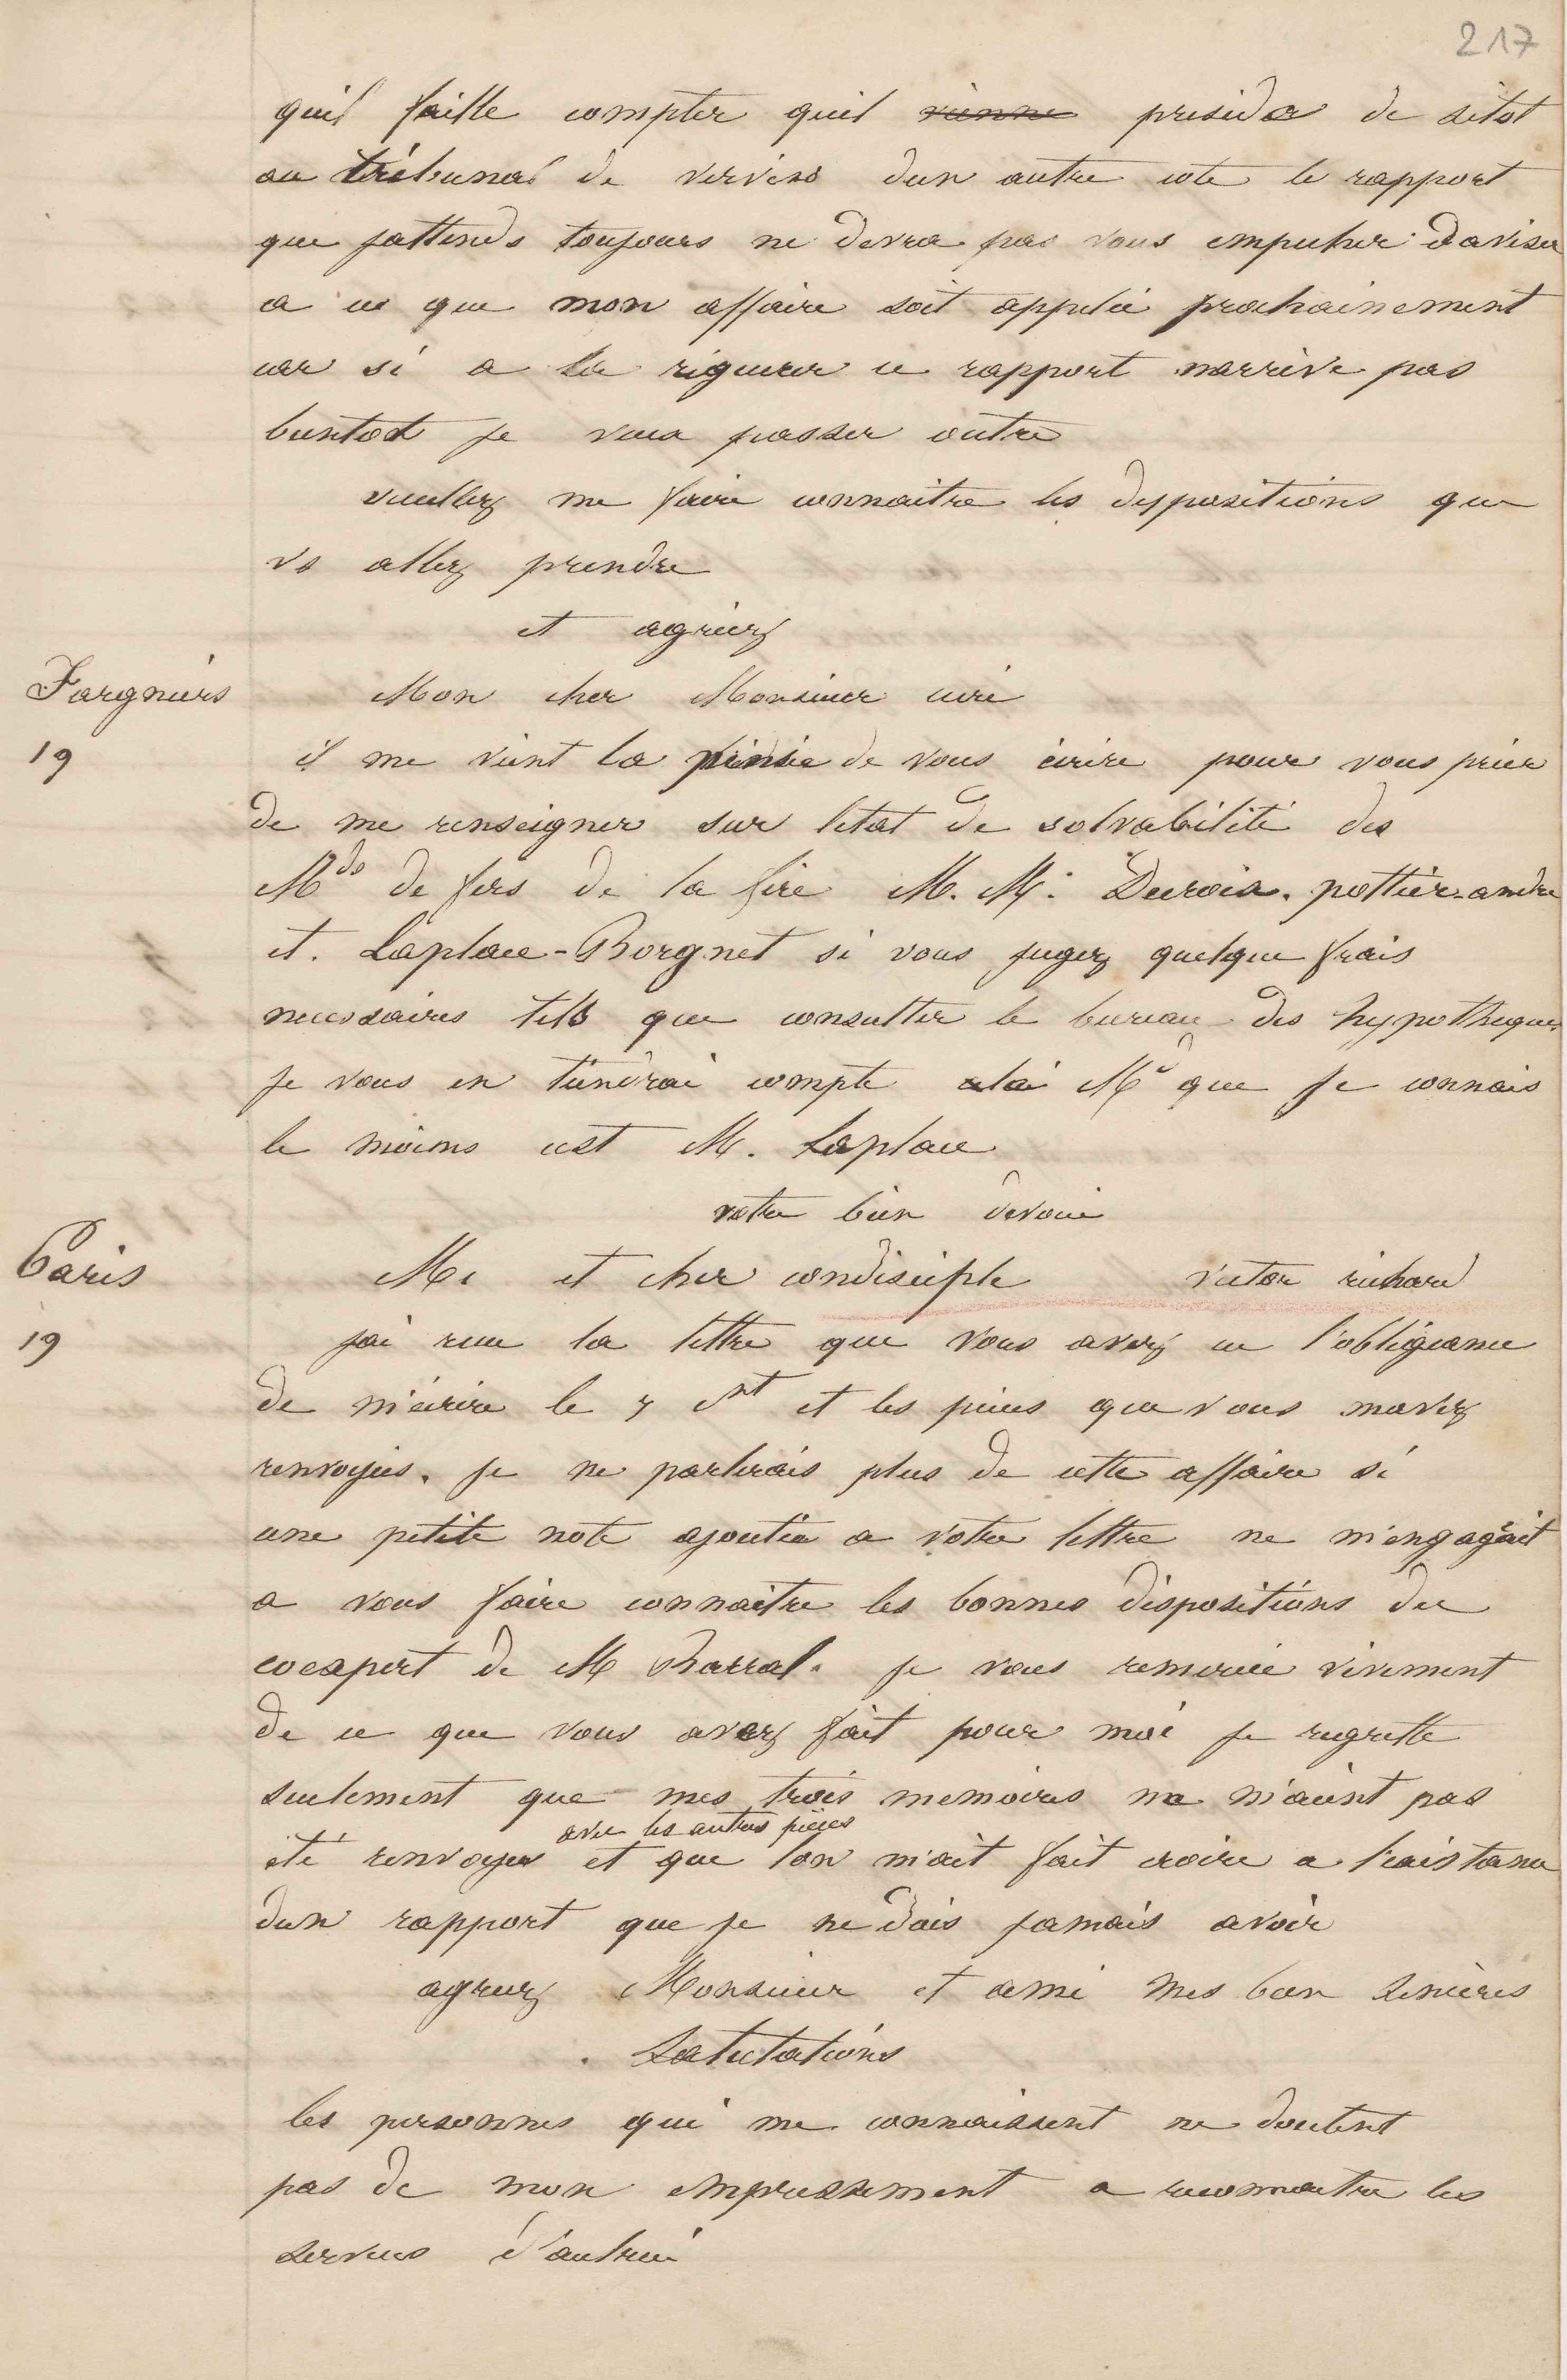 217
quil faille compter quil vienne presider de sitot
au tribunal de vervins dun autre cote le rapport
que jattends toujours ne devra pas vous empecher daviser
a ce que mon affaire soit appelée prochainement
car si a la rigueur ce rapport narrive pas
bientot je veux passer outre
veuillez me faire connaitre les dispositions que
vs allez prendre
et agréez
Fargniers
Mon cher Monsieur curé
19
il me vient la pensée de vous écrire pour vous prier
de me renseigner sur letat de solvabilité des
Mds de fers de la fère M. M. Duroia. pottier-andre
et. Laplace-Borgnet si vous jugez quelque frais
necessaires tels que consulter le bureau des hypotheques
je vous en tiendrai compte Md que je connais
le moins cest M. Laplace
votre bien devoué
Paris
Mr et cher condisciple victor richard
19
jai recu la lettre que vous avez eu l'obligeance
de m'écrire le 7 Ct et les pieces que vous mavez
renvoyées. je ne parlerais plus de cette affaire si
une petite note ajoutée a votre lettre ne m'engageait
a vous faire connaitre les bonnes dispositions du
coexpert de M Barral. je vous remercie vivement
de ce que vous avez fait pour moi je regrette
seulement que mes trois memoires ne m'aient pas
avec les autres pièces
été renvoyes et que lon m'ait fait croire a l'existance
dun rapport que je ne dois jamais avoir
agreez Monsieur et ami mes bien sincères
Salutations
les personnes qui me connaissent ne doutent
pas de mon empressement a reconnaitre les
services d'autrui